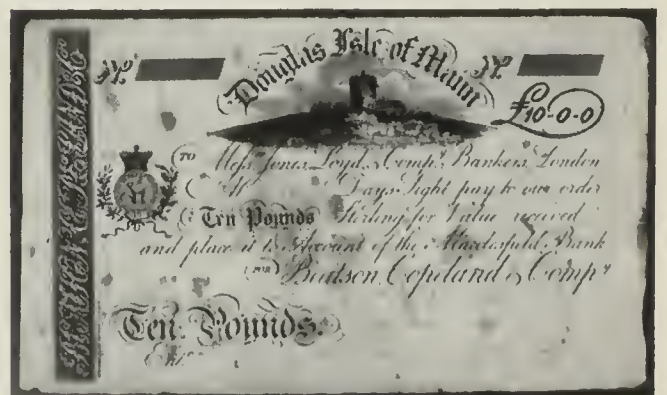 Nº Douglas Isle of Mann Nº
£10-0-0
TO Messrs Jones, Loyd, & Compy Bankers, London
Days Sight pay to our order
Ten Pounds Sterling for Value received
and place it to Account of the Bank
FOR Beatson, Copeland & Compy
Ten Pounds